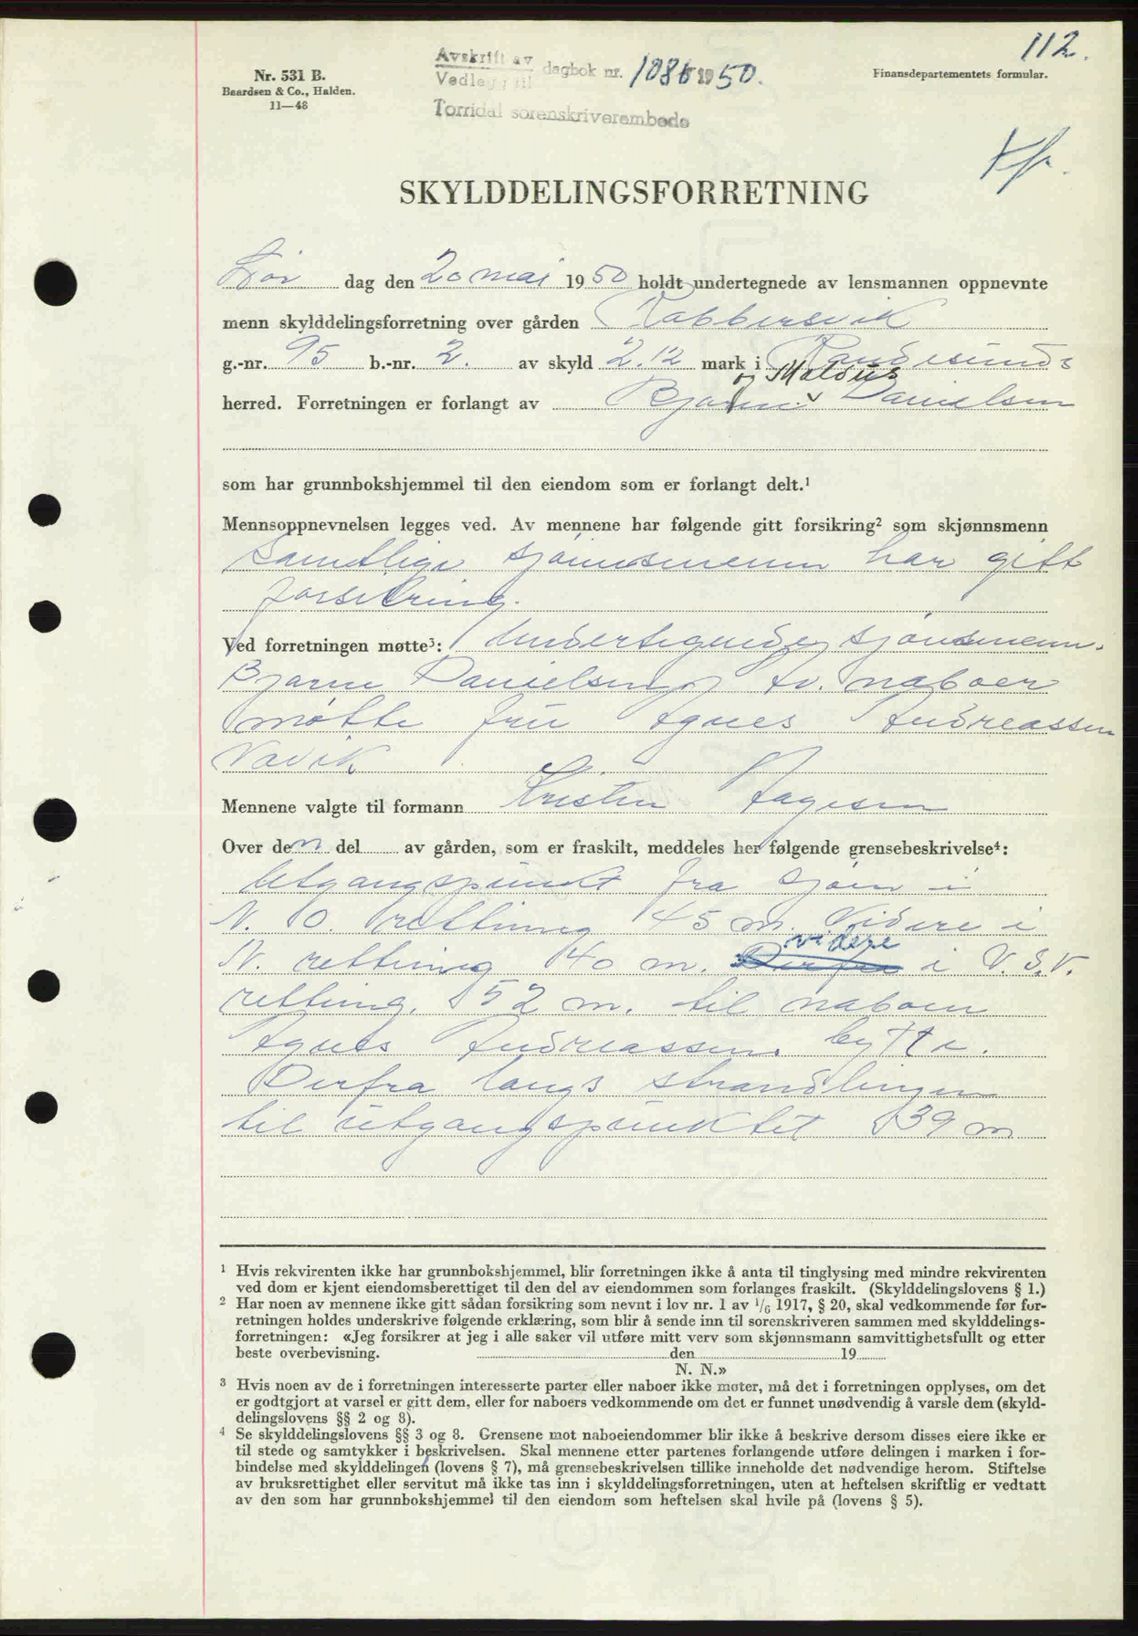 112.
Nr. 531 B.
Baardsen & Co., Halden.
11—48
Avskrift av
Vedlegg til
dagbok nr. 1086 1950.
Torridal sorenskriverembede
Finansdepartementets formular.
SKYLDDELINGSFORRETNING
Lør dag den 20 mai 1950 holdt undertegnede av lensmannen oppnevnte
menn skylddelingsforretning over gården Rabbersvik
g.-nr. 95 b.-nr. 2. av skyld 2.12 mark i Randesunds
og Maldus
herred. Forretningen er forlangt av Bjarne Danielsen
som har grunnbokshjemmel til den eiendom som er forlangt delt.¹
Mennsoppnevnelsen legges ved. Av mennene har følgende gitt forsikring² som skjønnsmenn
Samtlige sjønnsmenn har gitt
forsikring.
Ved forretningen møtte³: Undertegnede sjønsmenn.
Bjarne Danielsen, Av naboer
møtte fru Agnes Andreassen
Vavik
Mennene valgte til formann Kristen Aagesen
Over den del av gården, som er fraskilt, meddeles her følgende grensebeskrivelse⁴:
Utgangspunkt fra sjøen i
N. O. rettning 45 m. Videre i
videre
N. rettning 40 m. Derfra i V. S. V.
rettning. 52 m. til naboen
Agnes Andreassen bytte.
Derfra langs strandlinjen
til utgangspunktet 39 m
¹ Hvis rekvirenten ikke har grunnbokshjemmel, blir forretningen ikke å anta til tinglysing med mindre rekvirenten
ved dom er kjent eiendomsberettiget til den del av eiendommen som forlanges fraskilt. (Skylddelingslovens § 1.)
² Har noen av mennene ikke gitt sådan forsikring som nevnt i lov nr. 1 av ¹/₆ 1917, § 20, skal vedkommende før for-
retningen holdes underskrive følgende erklæring, som blir å sende inn til sorenskriveren sammen med skylddelings-
forretningen: «Jeg forsikrer at jeg i alle saker vil utføre mitt verv som skjønnsmann samvittighetsfullt og etter
beste overbevisning. den 19
N. N.»
³ Hvis noen av de i forretningen interesserte parter eller naboer ikke møter, må det i forretningen opplyses, om det
er godtgjort at varsel er gitt dem, eller for naboers vedkommende om det er funnet unødvendig å varsle dem (skyld-
delingslovens §§ 2 og 8).
⁴ Se skylddelingslovens §§ 3 og 8. Grensene mot naboeiendommer blir ikke å beskrive dersom disses eiere ikke er
til stede og samtykker i beskrivelsen. Skal mennene etter partenes forlangende utføre delingen i marken i for-
bindelse med skylddelingen (lovens § 7), må grensebeskrivelsen tillike inneholde det nødvendige herom. Stiftelse
av bruksrettighet eller servitut må ikke tas inn i skylddelingsforretningen, uten at heftelsen skriftlig er vedtatt
av den som har grunnbokshjemmel til den eiendom som heftelsen skal hvile på (lovens § 5).